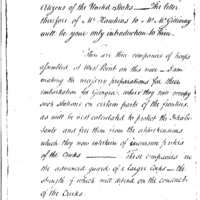 Citizens of the United States — The letter
therefore of Mr Hawkins to Mr McGillivray
will be your only introduction to him.
There are three companies of troops
at West Point on this river — I am
making the necessary preparations for their
embarkation for Georgia, where they will occupy
such stations on certain parts of the frontiers,
as will be best calculated to protect the Inhabi-
tants and free them from the apprehensions
which they now entertain of incursive parties
of the Creeks — These companies are
the advanced guard of a larger Corps — the
strength of which will depend on the conduct
of the Creeks.